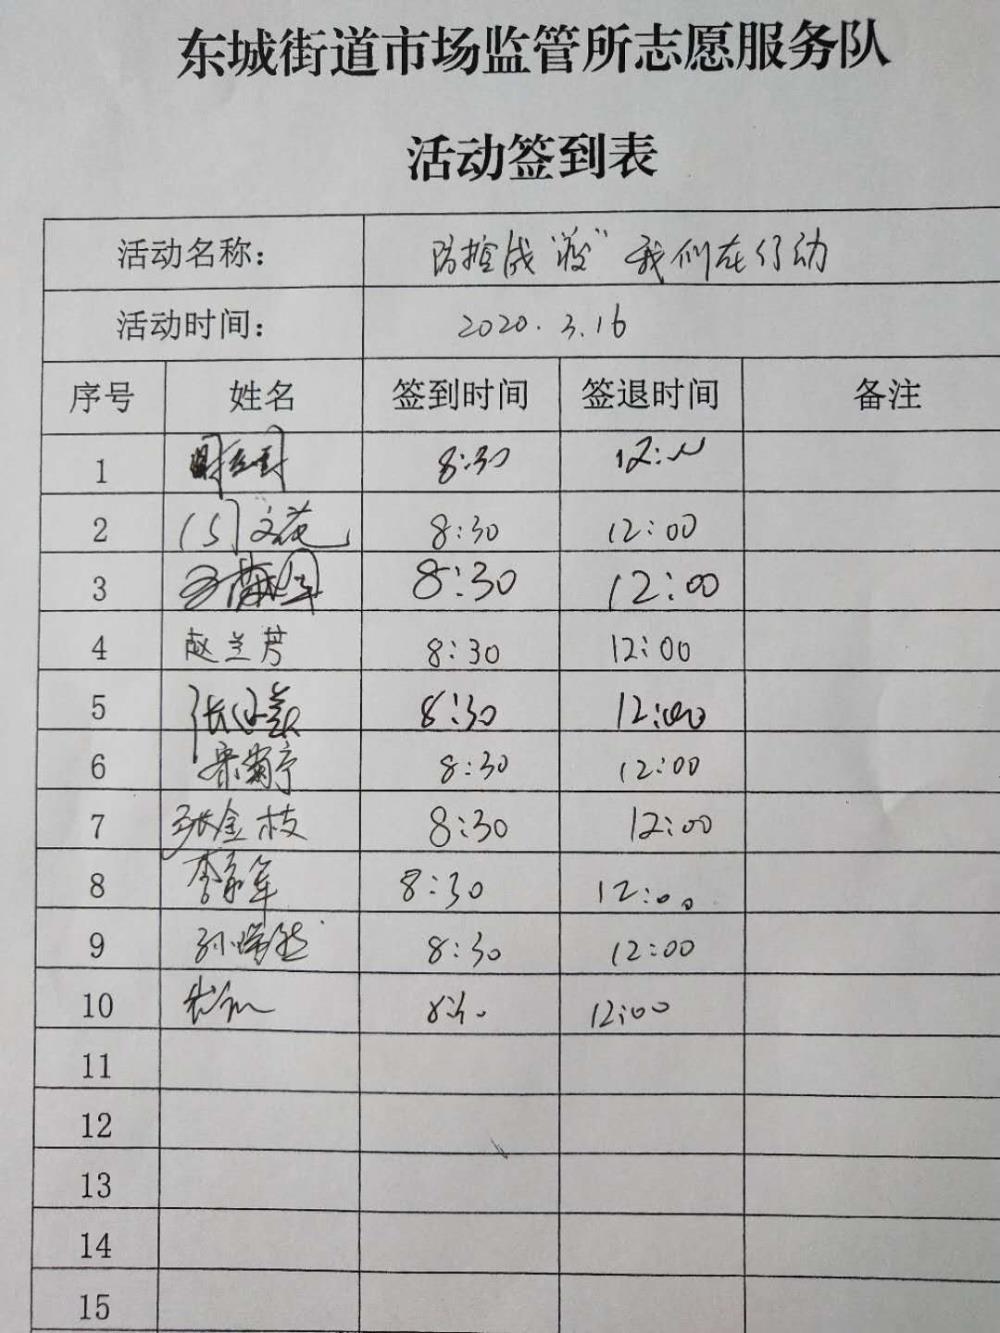 东城街道市场监管所志愿服务队
活动签到表
活动名称： 防控战"疫"我们在行动
活动时间： 2020.3.16
序号 姓名 签到时间 签退时间 备注
1 8:30 12:00
2 闫文花 8:30 12:00
3 8:30 12:00
4 赵兰芳 8:30 12:00
5 8:30 12:00
6 8:30 12:00
7 张金枝 8:30 12:00
8 8:30 12:00
9 8:30 12:00
10 8:30 12:00
11
12
13
14
15